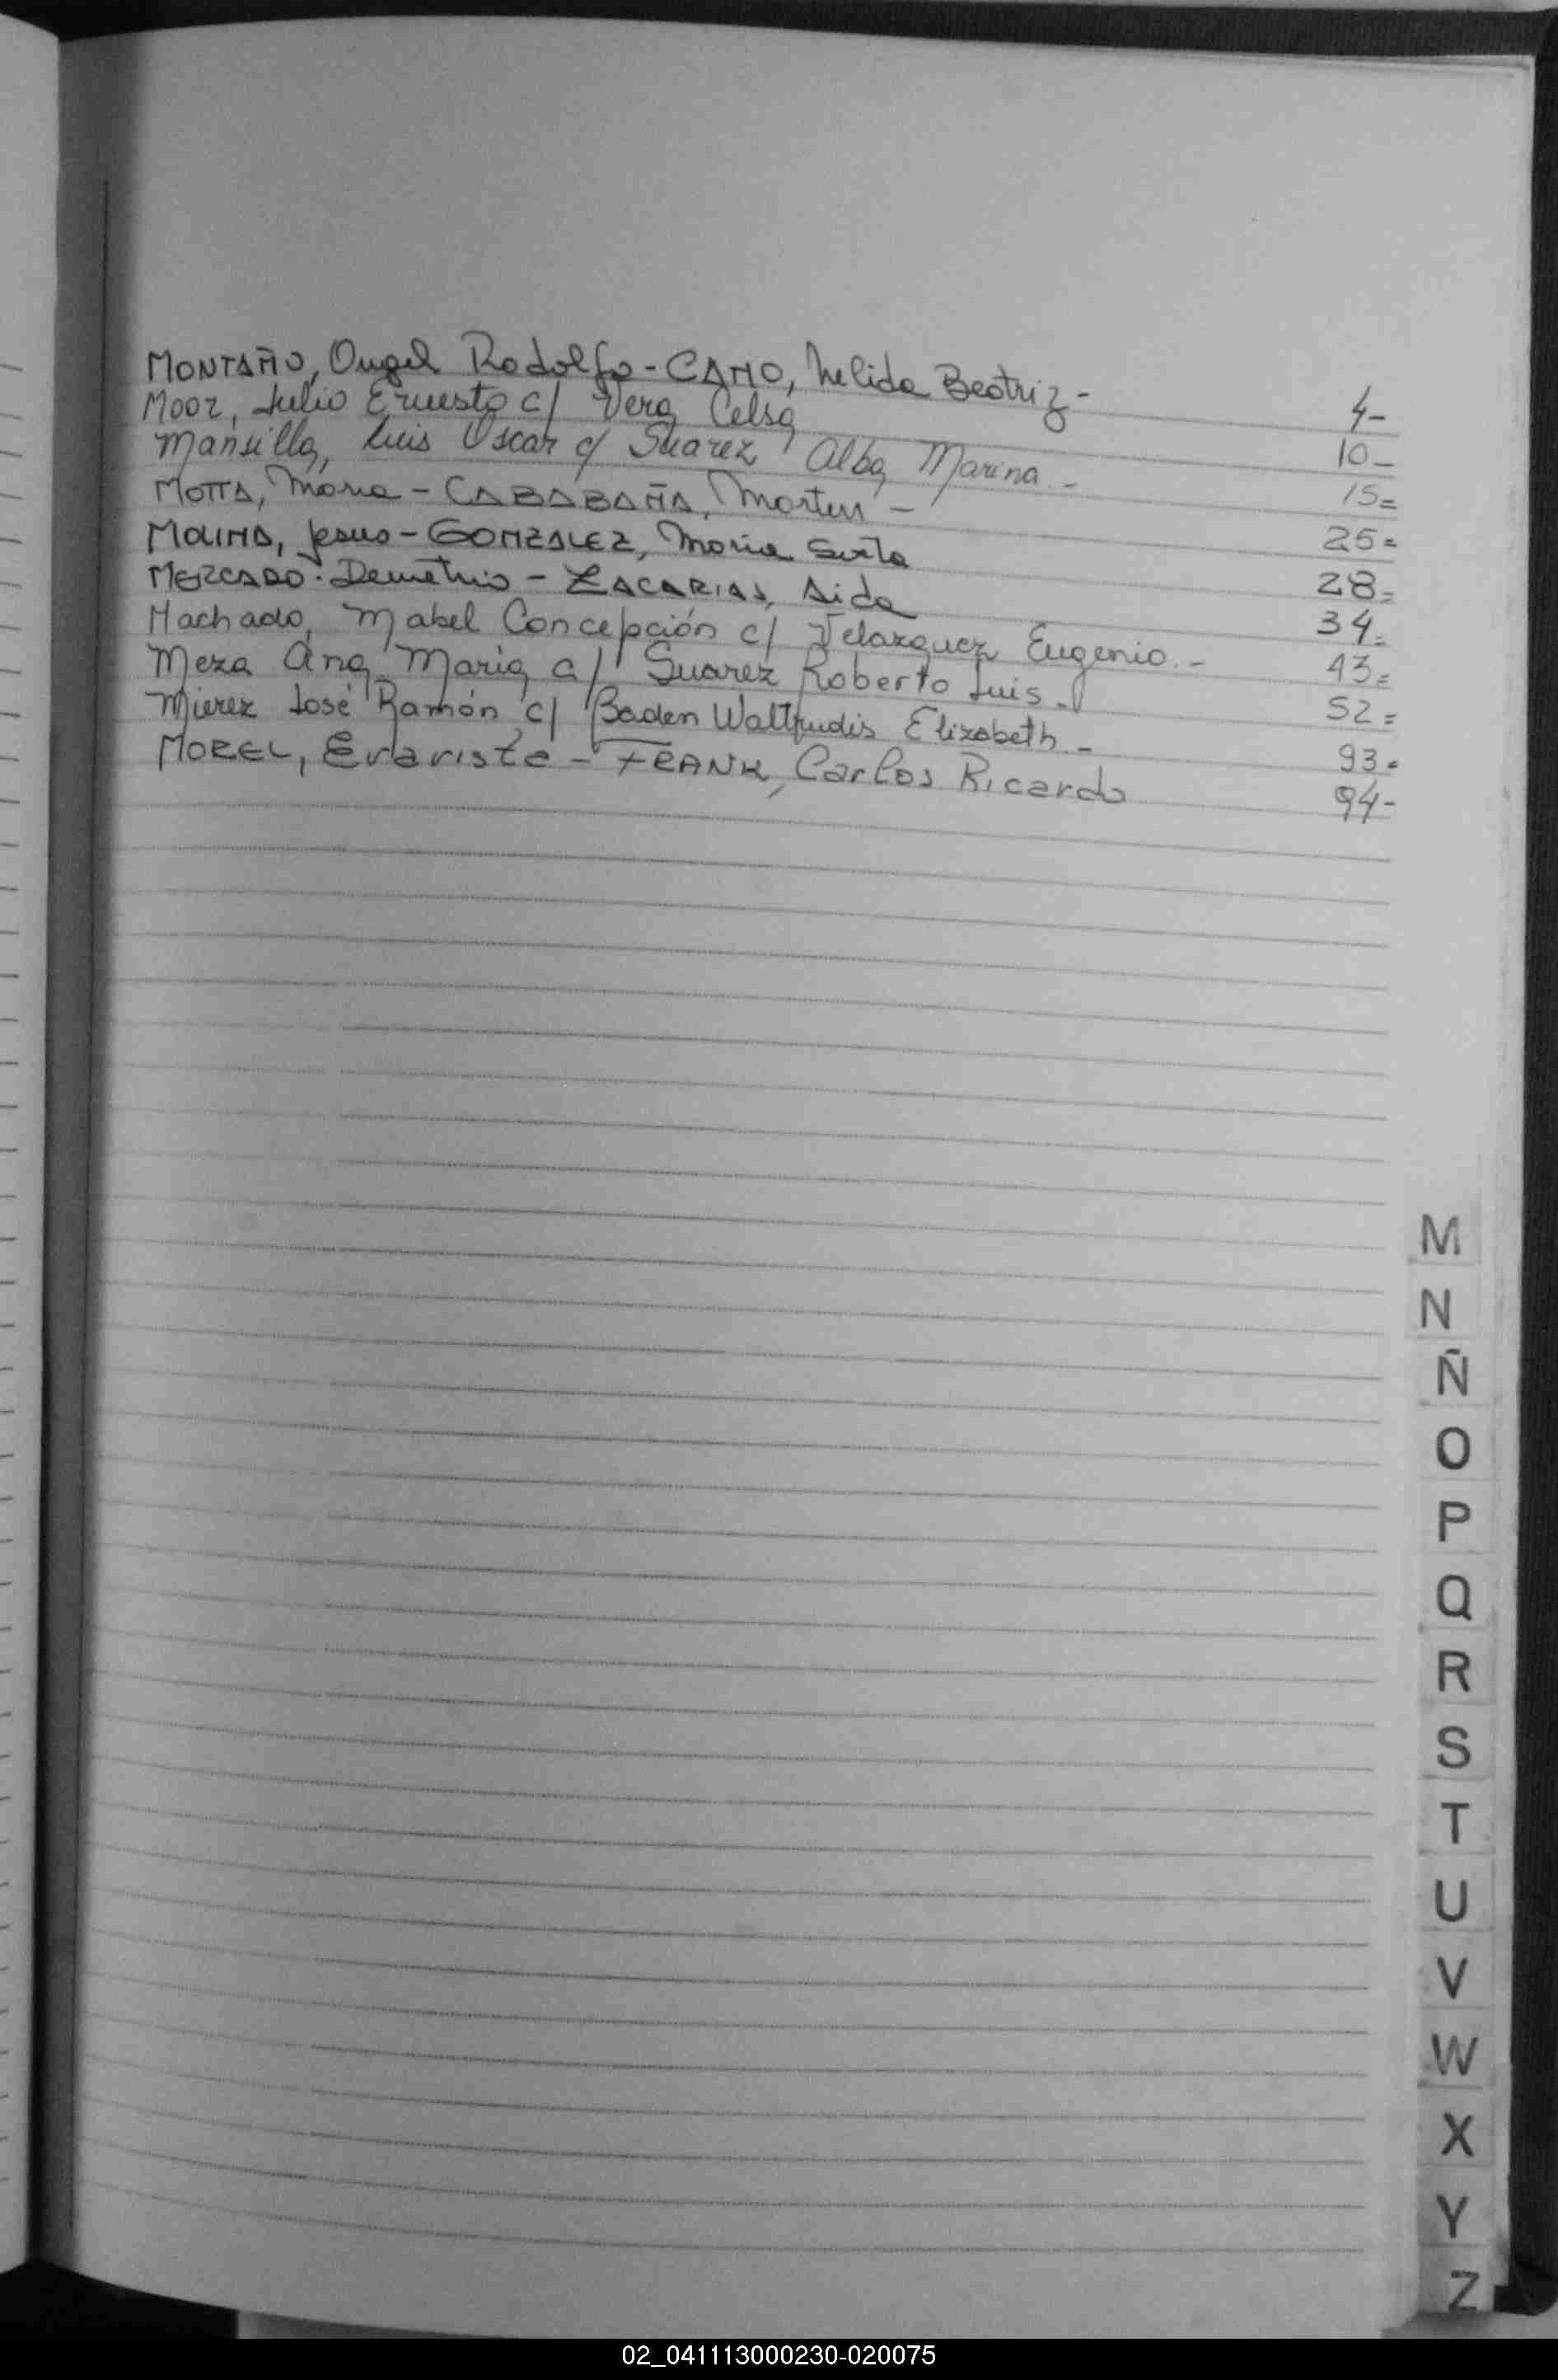 MONTAÑO, Angel Rodolfo - CANO, Nelida Beatriz - 4-
Mooz, Julio Ernesto c/ Vera, Celsa 10-
Mansilla, Luis Oscar c/ Suarez Alba Marina.- 15=
MOTTA, Maria - CABABAÑA, Martin - 25=
MOLINA, Jesus - GONZALEZ, Maria 28=
MERCADO. Demetrio - ZACARIAS, Aida 34=
Machado, Mabel Concepción c/ Velazquez Eugenio.- 43=
Meza Ana Maria c/ Suarez Roberto Luis.- 52=
Mierez José Ramón c/ Baden Elizabeth - 93=
MOREL, Evaristo - FRANK, Carlos Ricardo 94-
M
N
Ñ
O
P
Q
R
S
T
U
V
W
X
Y
Z
02_041113000230-020075